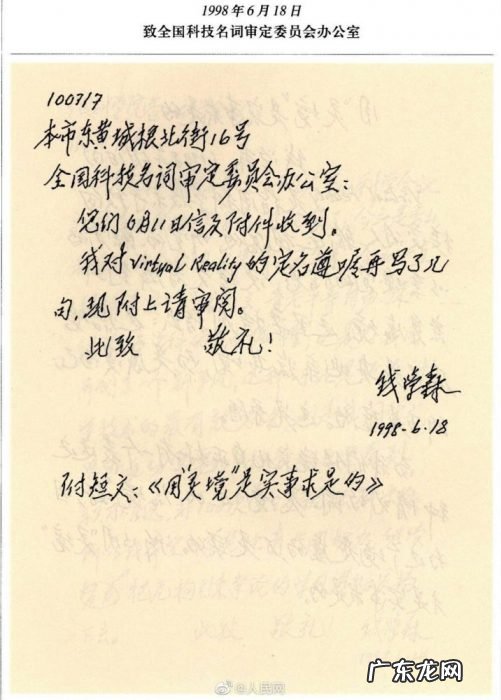 1998年6月18日
致全国科技名词审定委员会办公室
100717
本市东黄城根北街16号
全国科技名词审定委员会办公室：
您们6月11日信及附件收到。
我对Virtual Reality的定名遵嘱再写了几
句，现附上请审阅。
此致 敬礼！
钱学森
1998.6.18
附短文：《用“灵境”是实事求是的》
@人民网
广东龙网